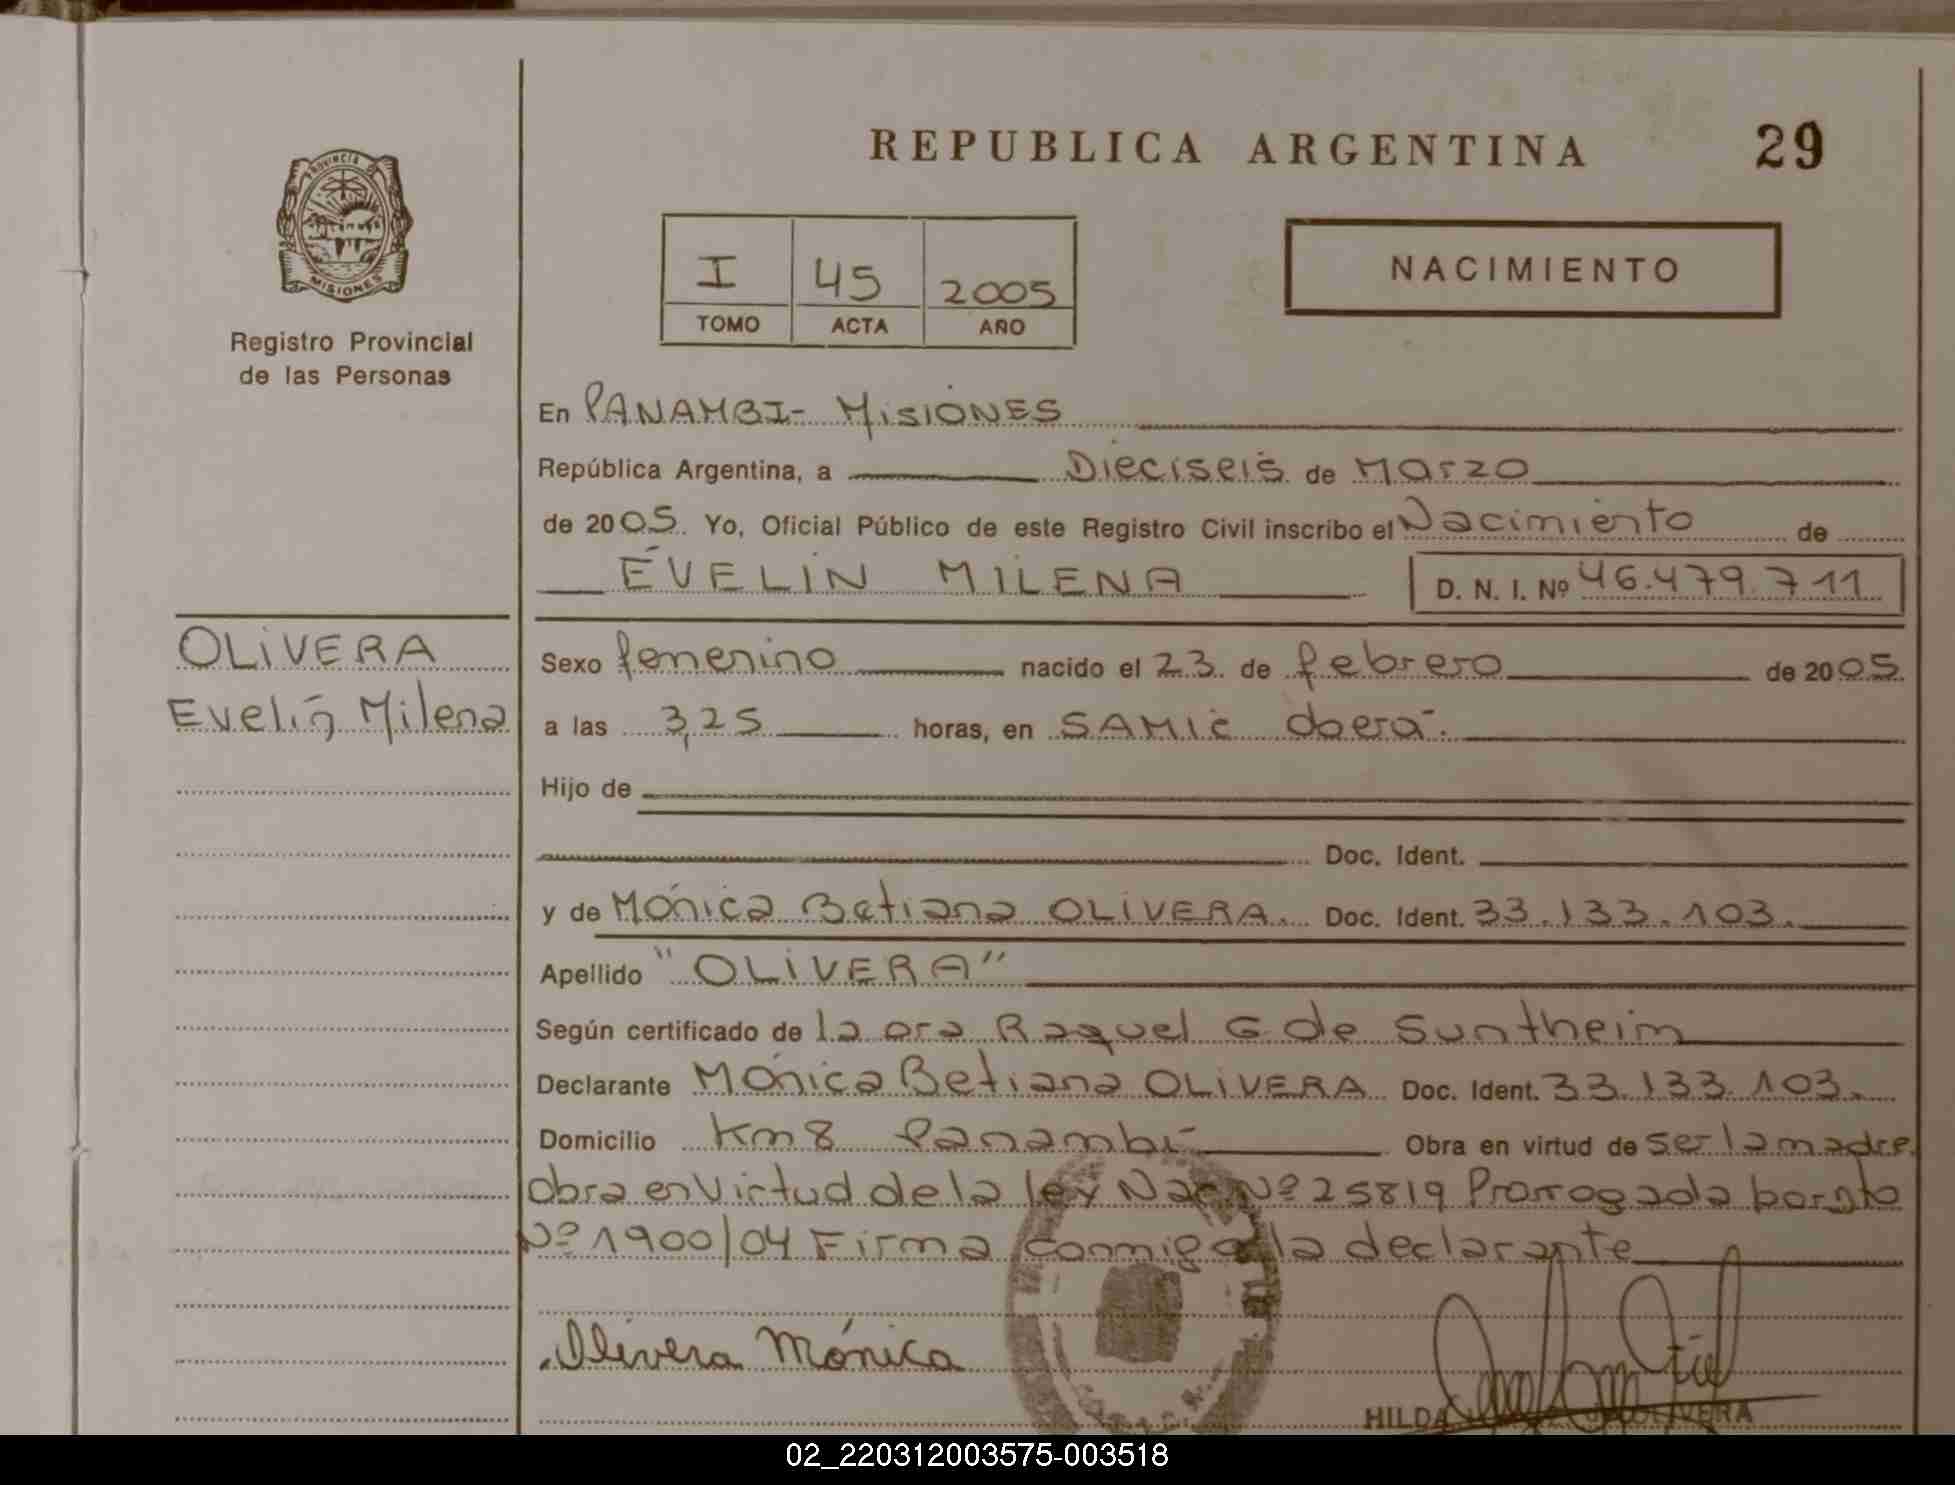 REPUBLICA ARGENTINA
29
PROVINCIA
MISIONES
Registro Provincial
de las Personas
I 45 2005
TOMO ACTA AÑO
NACIMIENTO
En PANAMBI- MISIONES
República Argentina, a Dieciseis de Marzo
de 2005. Yo, Oficial Público de este Registro Civil inscribo el Nacimiento de
EVELIN MILENA D. N. I. Nº 46.479.711
OLIVERA
Evelin Milena
Sexo femenino nacido el 23 de febrero de 2005.
a las 3,25 horas, en SAMIC Oberá.
Hijo de
Doc. Ident.
y de Mónica Betiana OLIVERA. Doc. Ident. 33.133.103.
Apellido "OLIVERA"
Según certificado de la Dra Raquel G de Suntheim
Declarante Mónica Betiana OLIVERA Doc. Ident. 33.133.103.
Domicilio Km 8 Panambí Obra en virtud de ser la madre.
Obra en virtud de la ley Nac Nº 25819 Prorrogada por Dto
Nº 1900/04 Firma conmigo la declarante
Olivera Mónica
HILDA OLIVERA
02_220312003575-003518